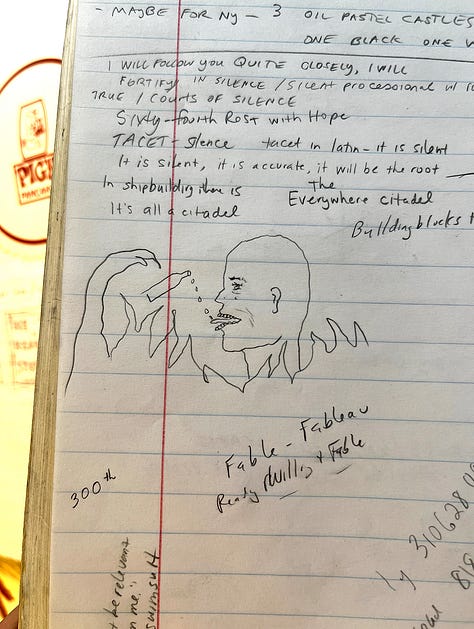 - MAYBE FOR NY - 3 OIL PASTEL CASTLES
ONE BLACK ONE
I WILL FOLLOW YOU QUITE CLOSELY, I WILL
FORTIFY IN SILENCE / SILENT PROCESSIONAL
TRUE / COURTS OF SILENCE
Sixty-fourth Rost with Hope
TACET - Silence tacet in latin - it is silent
It is silent, it is accurate, it will be the root
In shipbuilding there is The
Everywhere citadel
It's all a citadel
Building blocks
PIG
Fable - Fableau
Ready Willing + Fable
300th
be relevant
in me."
swimsuit